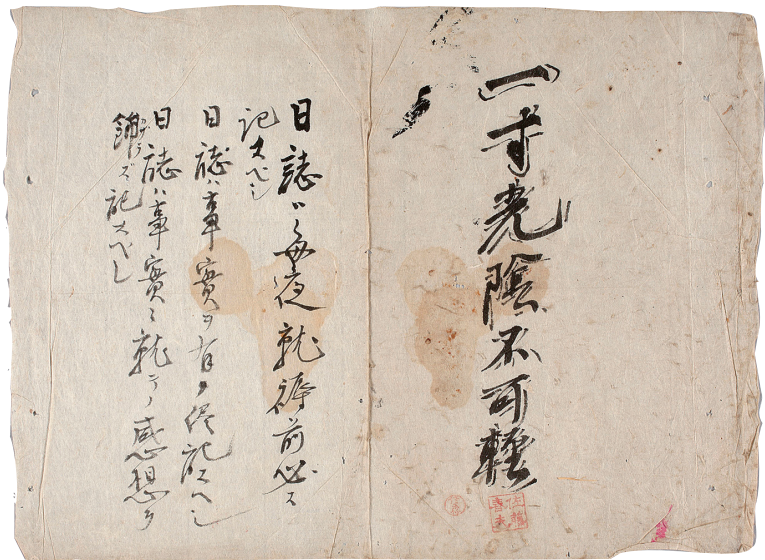 一寸光陰不可軽
日誌ハ毎夜就褥前必ズ
記スベシ
日誌ハ事實ヲ有ノ侭記スヘシ
日誌ハ事實ニ就テノ感想ヲ
餝ラズ記スベシ